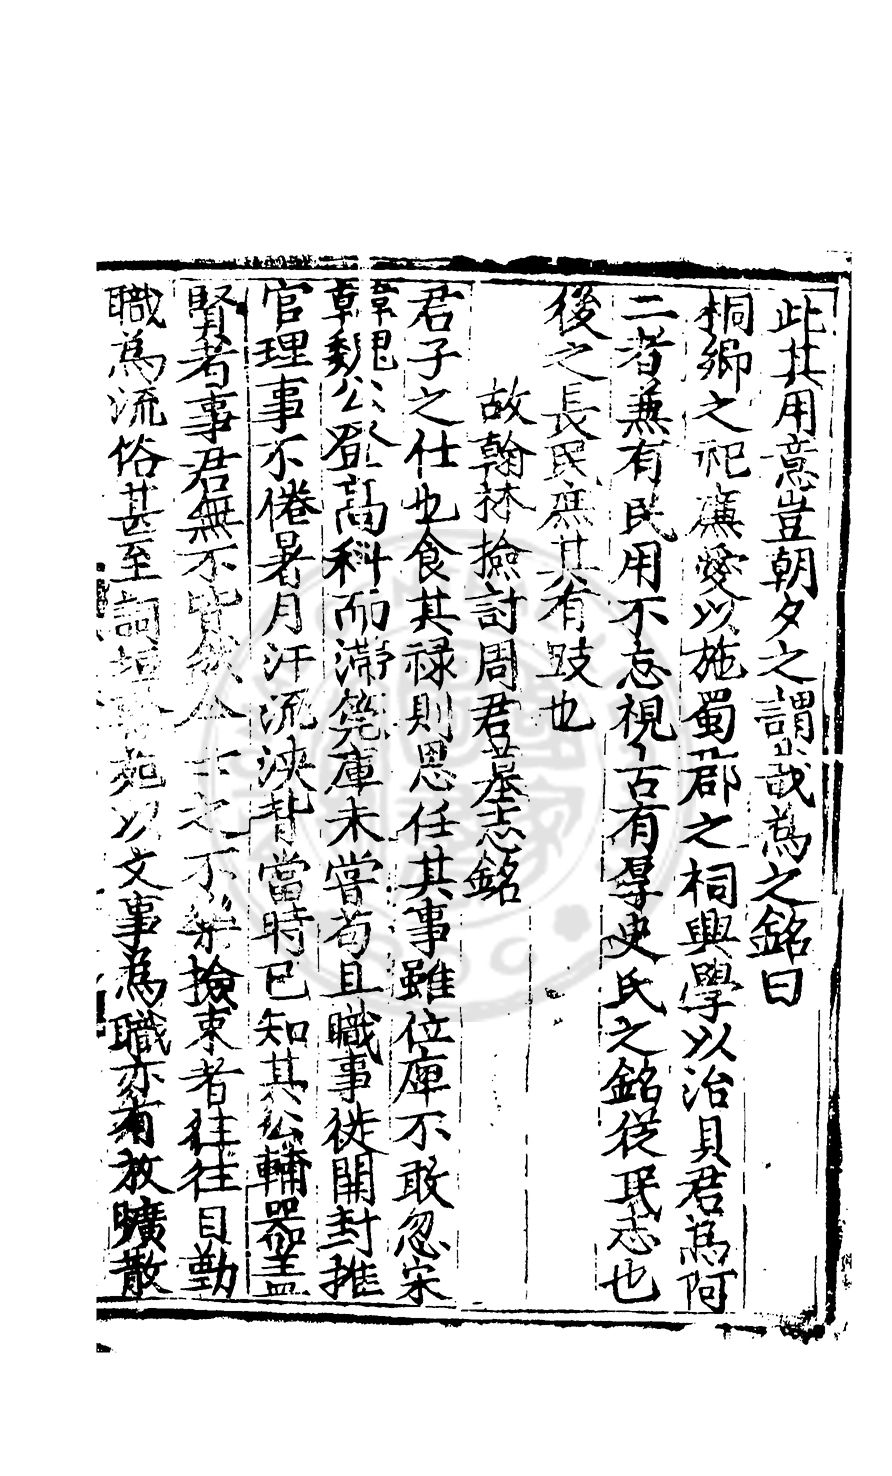 此其用意豈朝夕之謂哉為之銘曰
桐鄉之祀廉愛以施蜀郡之祠興學以治貝君為阿
二者兼有民用不忘視古有學史氏之銘從民志也
後之長民庶其有跂也
故翰林撿討周君墓志銘
君子之仕也食其祿則思任其事雖位庳不敢忽宋
韓魏公登高科而滯筦庫未嘗苟且職事徙開封推
官理事不倦暑月汗流浹背當時已知其公輔器盖
賢者事君無不皆然今士之不樂撿束者往往目勤
職為流俗甚至詞垣 苑以文事為職亦有放曠散